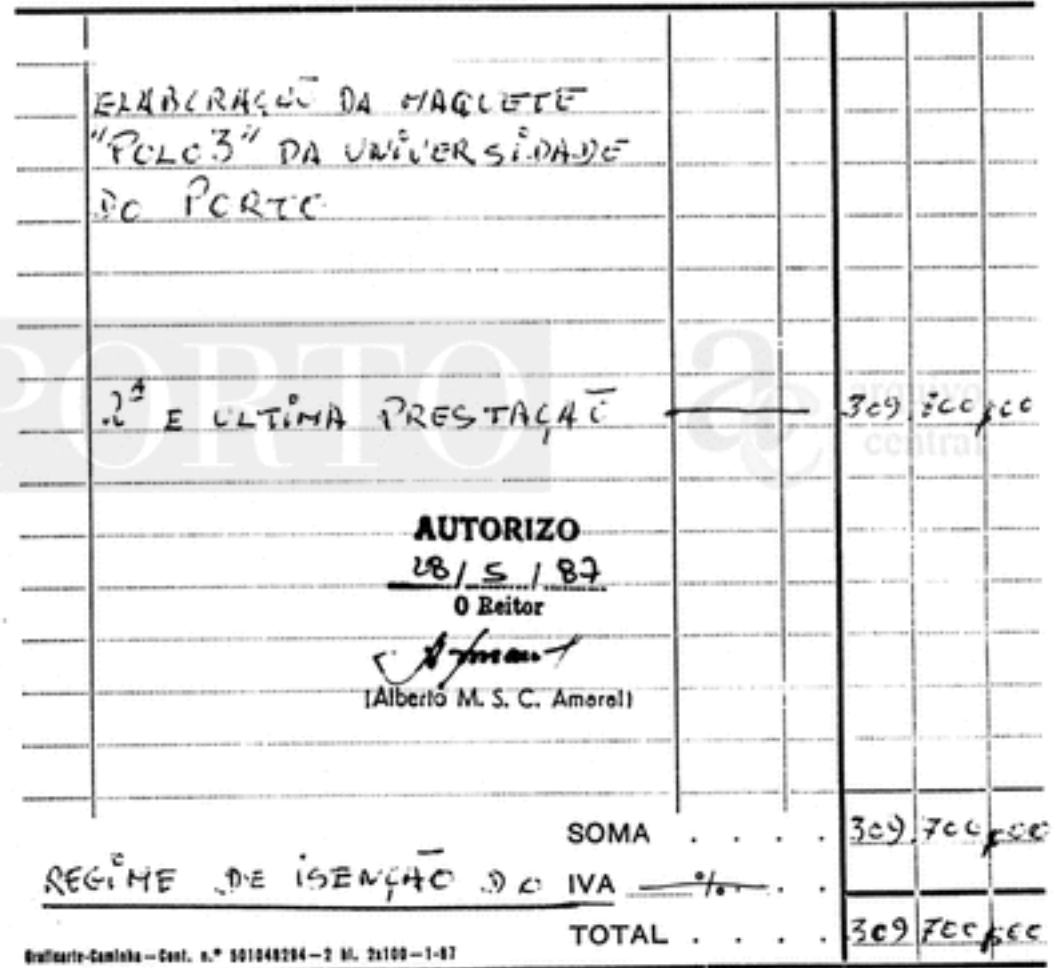 ELABORAÇÃO DA MAQUETE
"POLO 3" DA UNIVERSIDADE
DO PORTO
PORTO
arquivo
central
2ª E ULTIMA PRESTAÇAÕ — 309.700$00
AUTORIZO
28 / 5 / 87
O Reitor
(Alberto M. S. C. Amaral)
SOMA . . . . 309.700$00
REGIME DE ISENÇÃO DO IVA % . .
TOTAL . . . . 309 700$00
Graficarte-Caminha — Cont. n.º 501048294 — 2 bl. 2x100 — 1-87